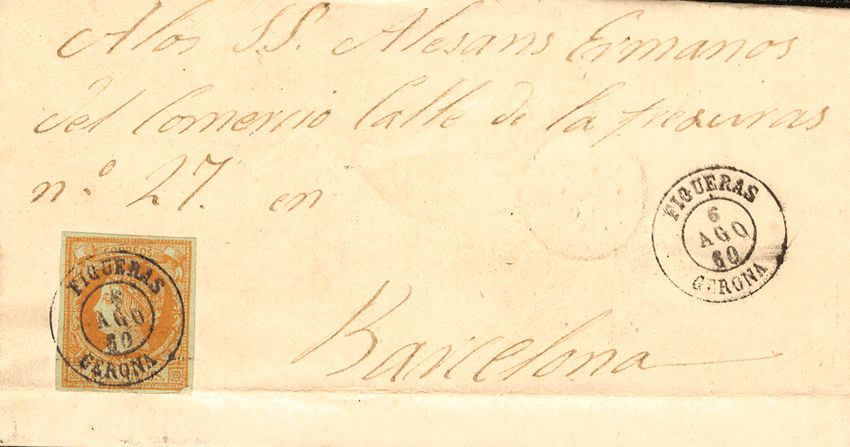 A los S.S. Alesans Ermanos
del Comercio Calle de la
nº 27. en
FIGUERAS
6
AGO
60
GERONA
CORREOS
FIGUERAS
6
AGO
60
GERONA
Barcelona